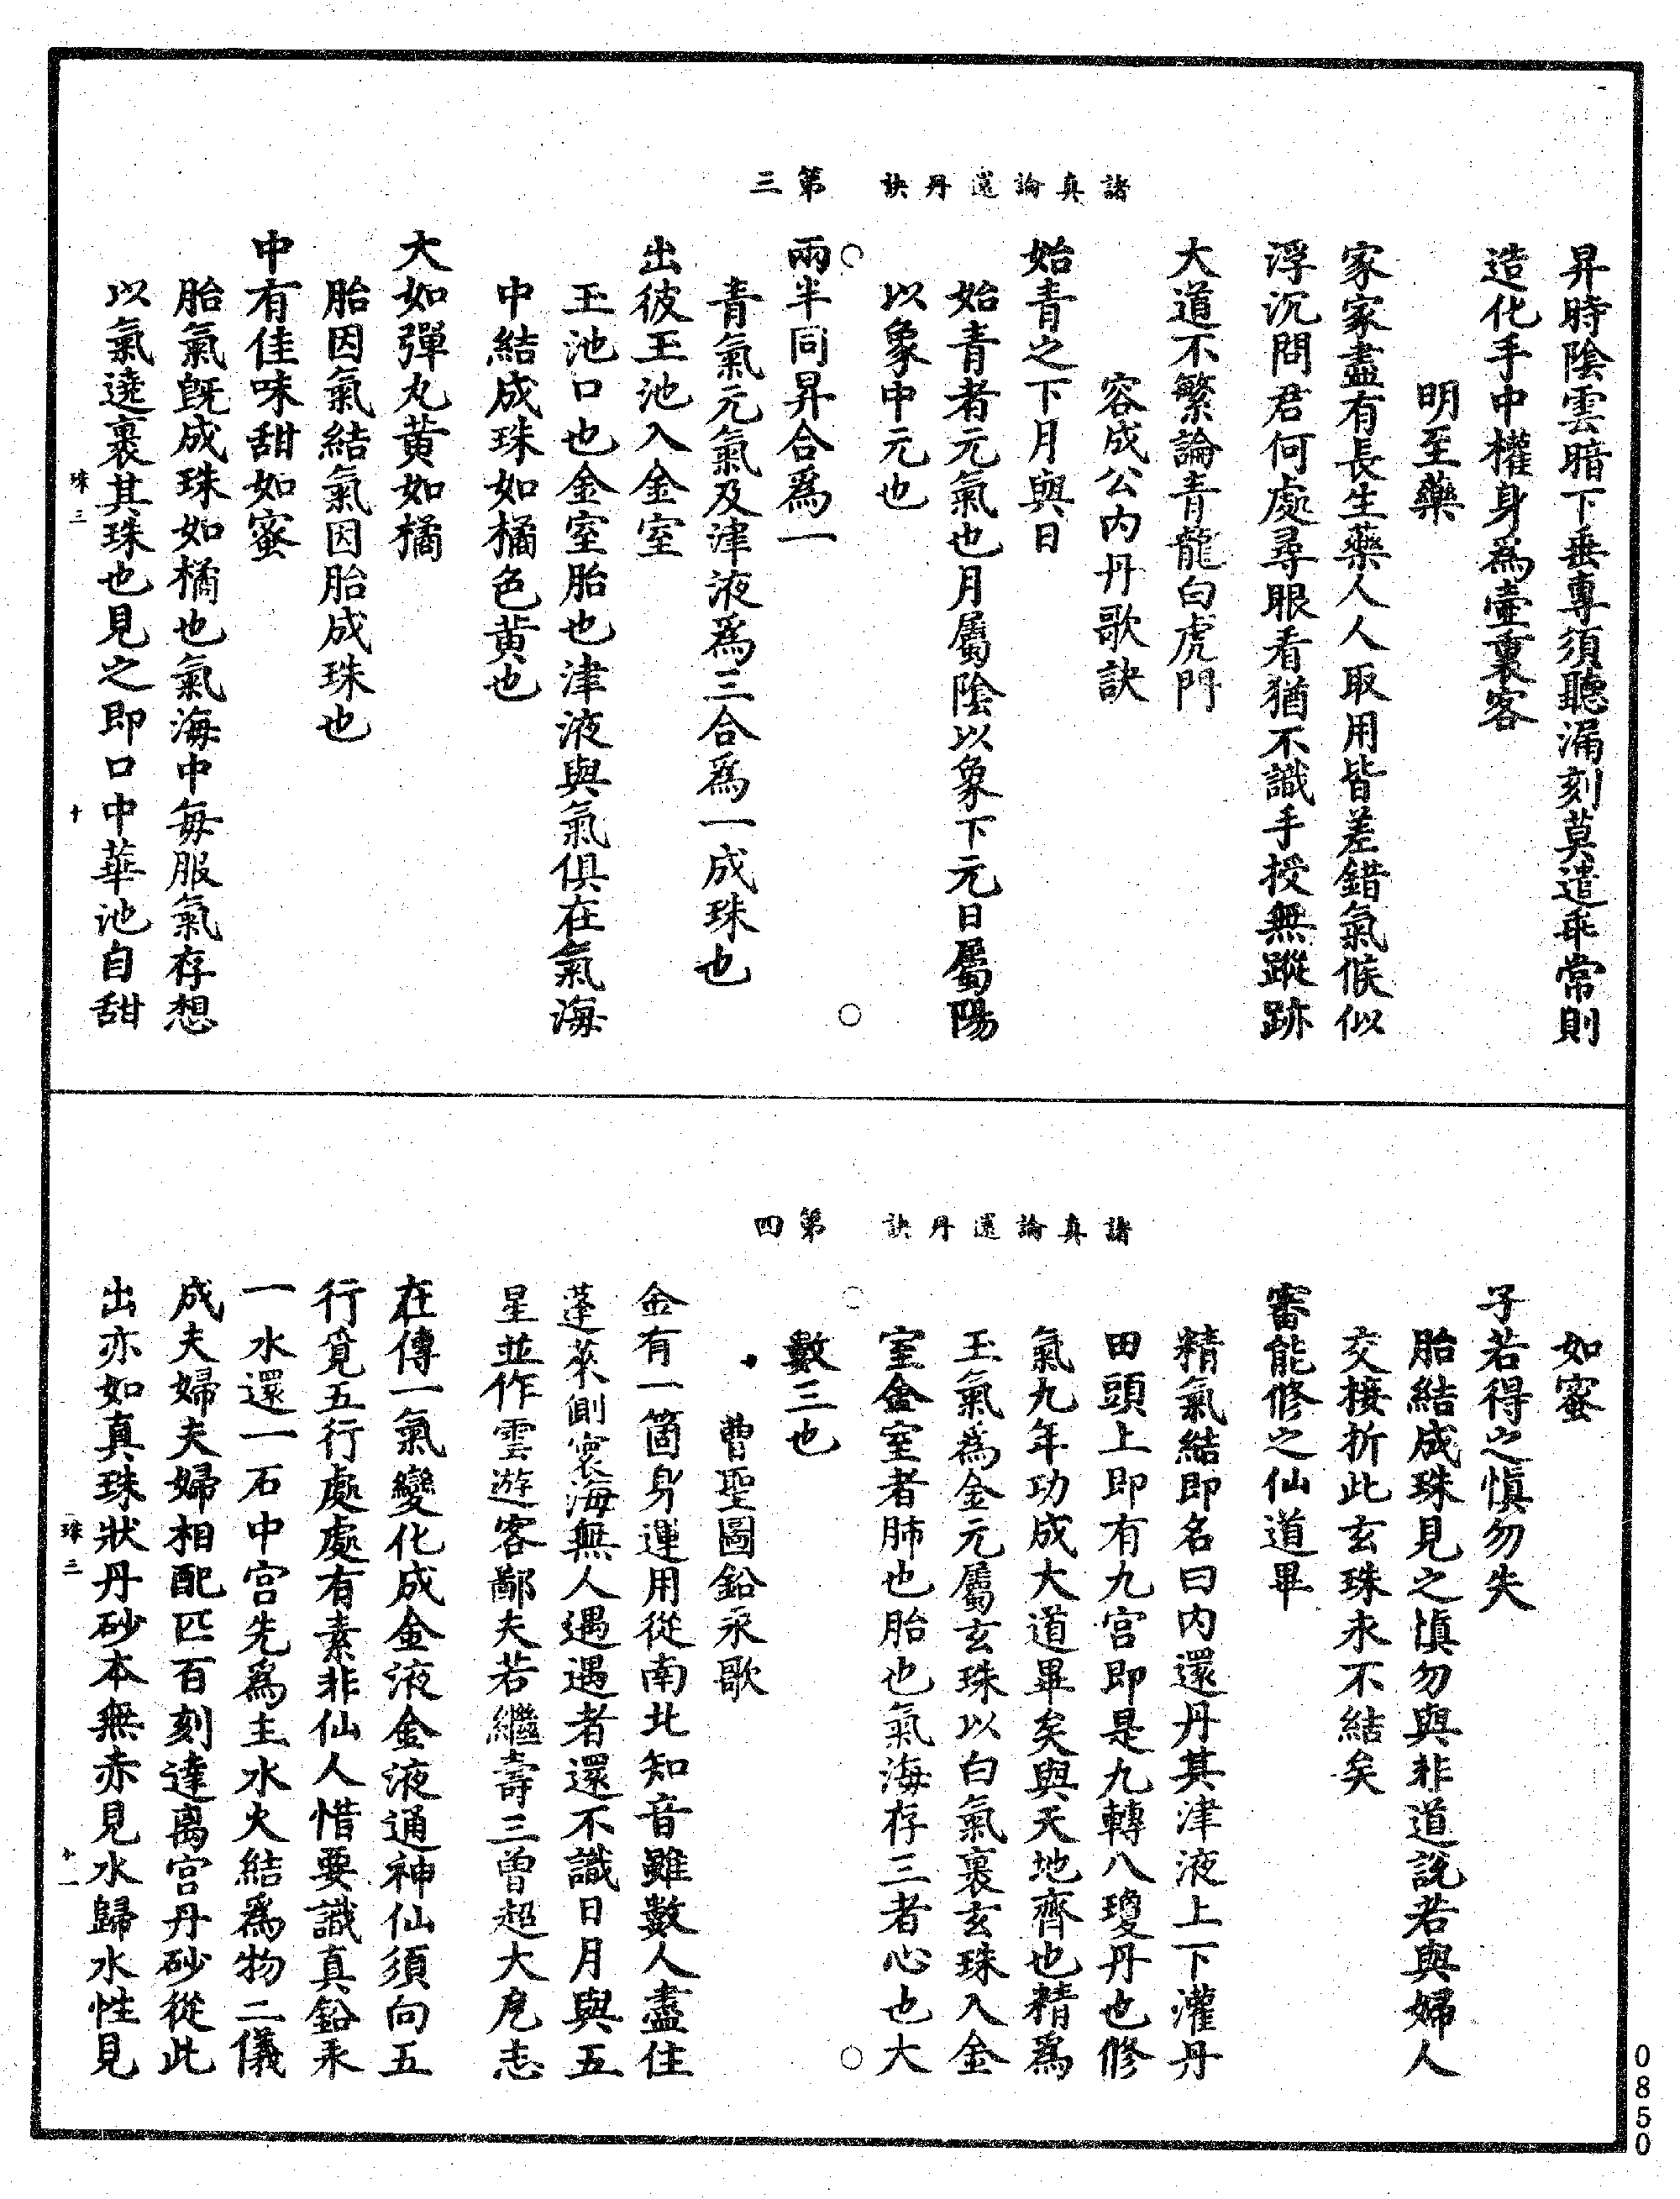 昇時陰雲暗下垂專須聽漏刻莫遣乖常則
造化手中權身爲壷裏客
明至藥
家家盡有長生藥人人取用皆差錯氣候似
浮沉問君何處尋眼看猶不識手授無蹤跡
大道不繁論青龍白虎門
容成公內丹歌訣
始青之下月與日
始青者元氣也月屬陰以象下元日屬陽
以象中元也
諸真論還丹訣 第三
兩半同昇合爲一
青氣元氣及津液爲三合爲一成珠也
出彼玉池入金室
玉池口也金室胎也津液與氣俱在氣海
中結成珠如橘色黃也
大如彈丸黃如橘
胎因氣結氣因胎成珠也
中有佳味甜如蜜
胎氣旣成珠如橘也氣海中每服氣存想
以氣遶裹其珠也見之即口中華池自甜
珠三 十
如蜜
子若得之愼勿失
胎結成珠見之愼勿與非道說若與婦人
交接折此玄珠永不結矣
審能修之仙道畢
精氣結即名曰內還丹其津液上下灌丹
田頭上即有九宮即是九轉八瓊丹也修
氣九年功成大道畢矣與天地齊也精爲
玉氣爲金元屬玄珠以白氣裹玄珠入金
室金室者肺也胎也氣海存三者心也大
諸真論還丹訣 第四
數三也
曹聖圖鉛汞歌
金有一箇身運用從南北知音雖數人盡住
蓬萊側寰海無人遇遇者還不識日月與五
星並作雲遊客鄙夫若繼壽三曾超大厄志
在傳一氣變化成金液金液通神仙須向五
行覓五行處處有素非仙人惜要識真鉛汞
一水還一石中宮先爲主水火結爲物二儀
成夫婦夫婦相配匹百刻達离宮丹砂從此
出亦如真珠狀丹砂本無赤見水歸水性見
珠三 十一
0850